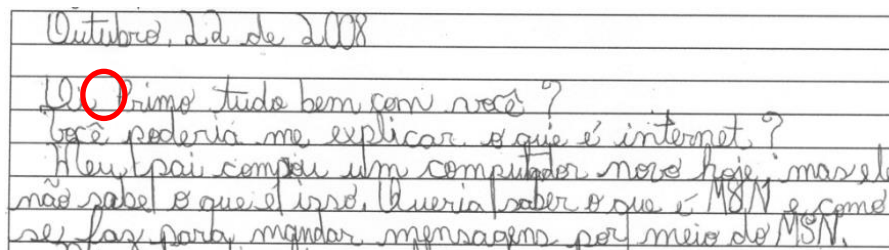 Outubro, 22 de 2008
Oi Primo tudo bem com você ?
você poderia me explicar o que é internet ?
Meu pai compou um computador novo hoje, mas ele
não sabe o que é isso. Queria saber o que é MSN e como
se faz para mandar mensagens por meio do MSN.